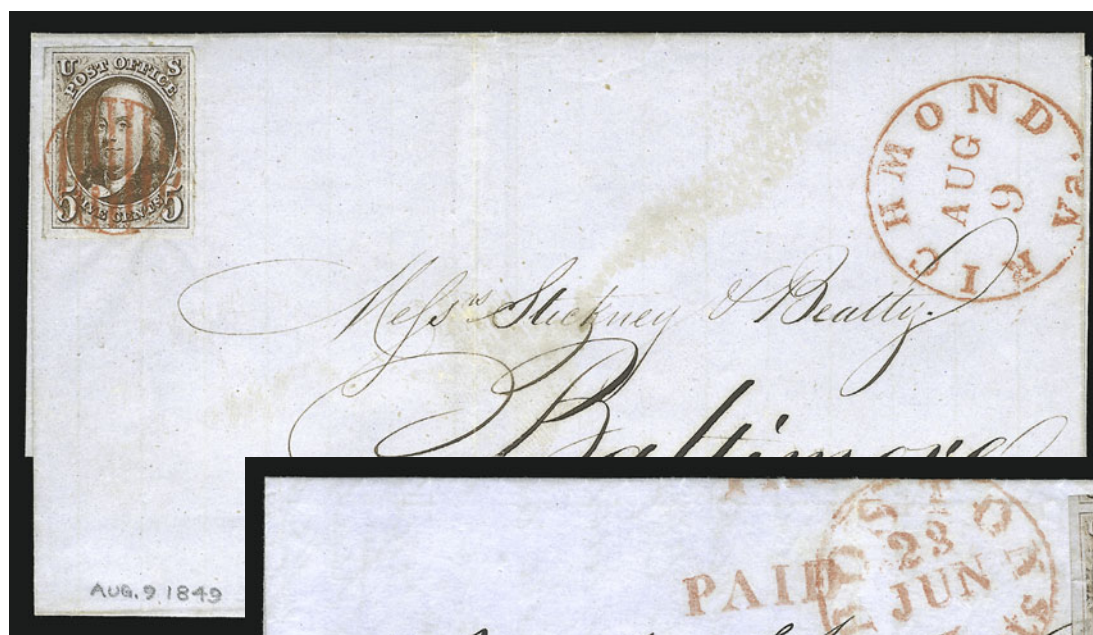 U S
POST OFFICE
5 FIVE CENTS 5
RICHMOND Va.
AUG
9
Mess^rs Stickney & Beatty.
Baltimore
AUG. 9 1849
23
JUN
PAID